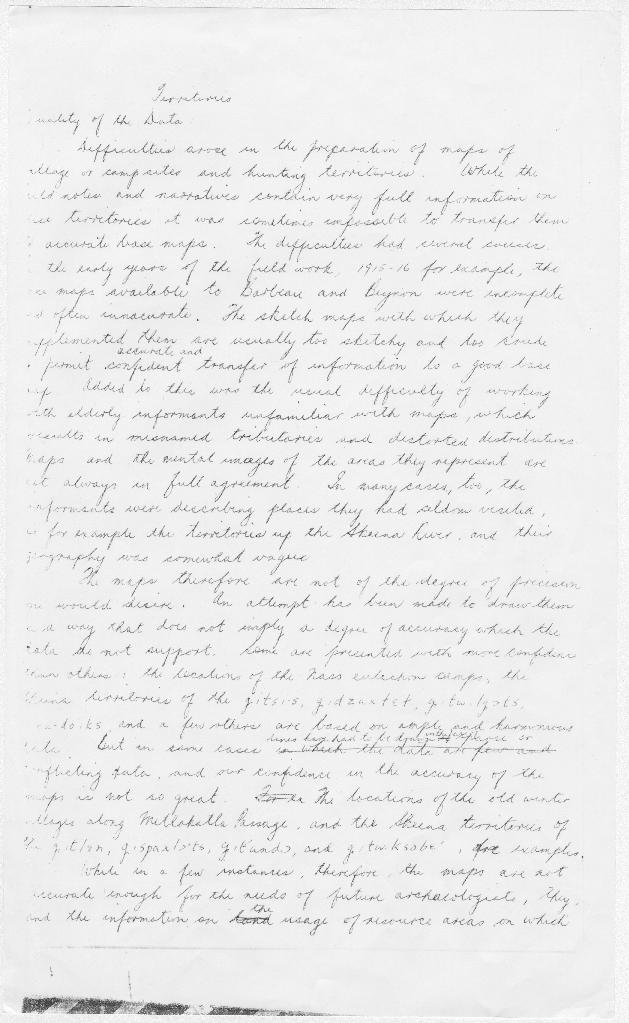 Territories
uality of the Data
Difficulties arose in the preparation of maps of
llage or camp sites and hunting territories. While the
ld notes and narratives contain very full information on
se territories it was sometimes impossible to transfer them
accurate base maps. The difficulties had several sources.
the early years of the field work, 1915-16 for example, the
se maps available to Barbeau and Beynon were incomplete
d often innacurate. The sketch maps with which they
pplemented them are usually too sketchy and too crude
accurate and
permit confident transfer of information to a good base
ap Added to this was the usual difficulty of working
ith elderly informants unfamiliar with maps, which
results in misnamed tributaries and distorted distributions.
Maps and the mental images of the areas they represent are
ot always in full agreement. In many cases, too, the
nformants were describing places they had seldom visited,
as for example the territories up the Skeena River, and their
geography was somewhat vague
The maps therefore are not of the degree of precision
one would desire. An attempt has been made to draw them
in a way that does not imply a degree of accuracy which the
data do not support. Some are presented with more confidence
than others: the locations of the Nass eulachon camps, the
Skeena territories of the
and a few others are based on ample and harmonious
lines have had to be drawn
data But in some cases in which the data are few and
onflicting data, and our confidence in the accuracy of the
maps is not so great. The locations of the old winter
illages along Metlakatla Passage, and the Skeena territories of
the are examples.
While in a few instances, therefore, the maps are not
accurate enough for the needs of future archaeologists, they,
the
and the information on land usage of resource areas on which